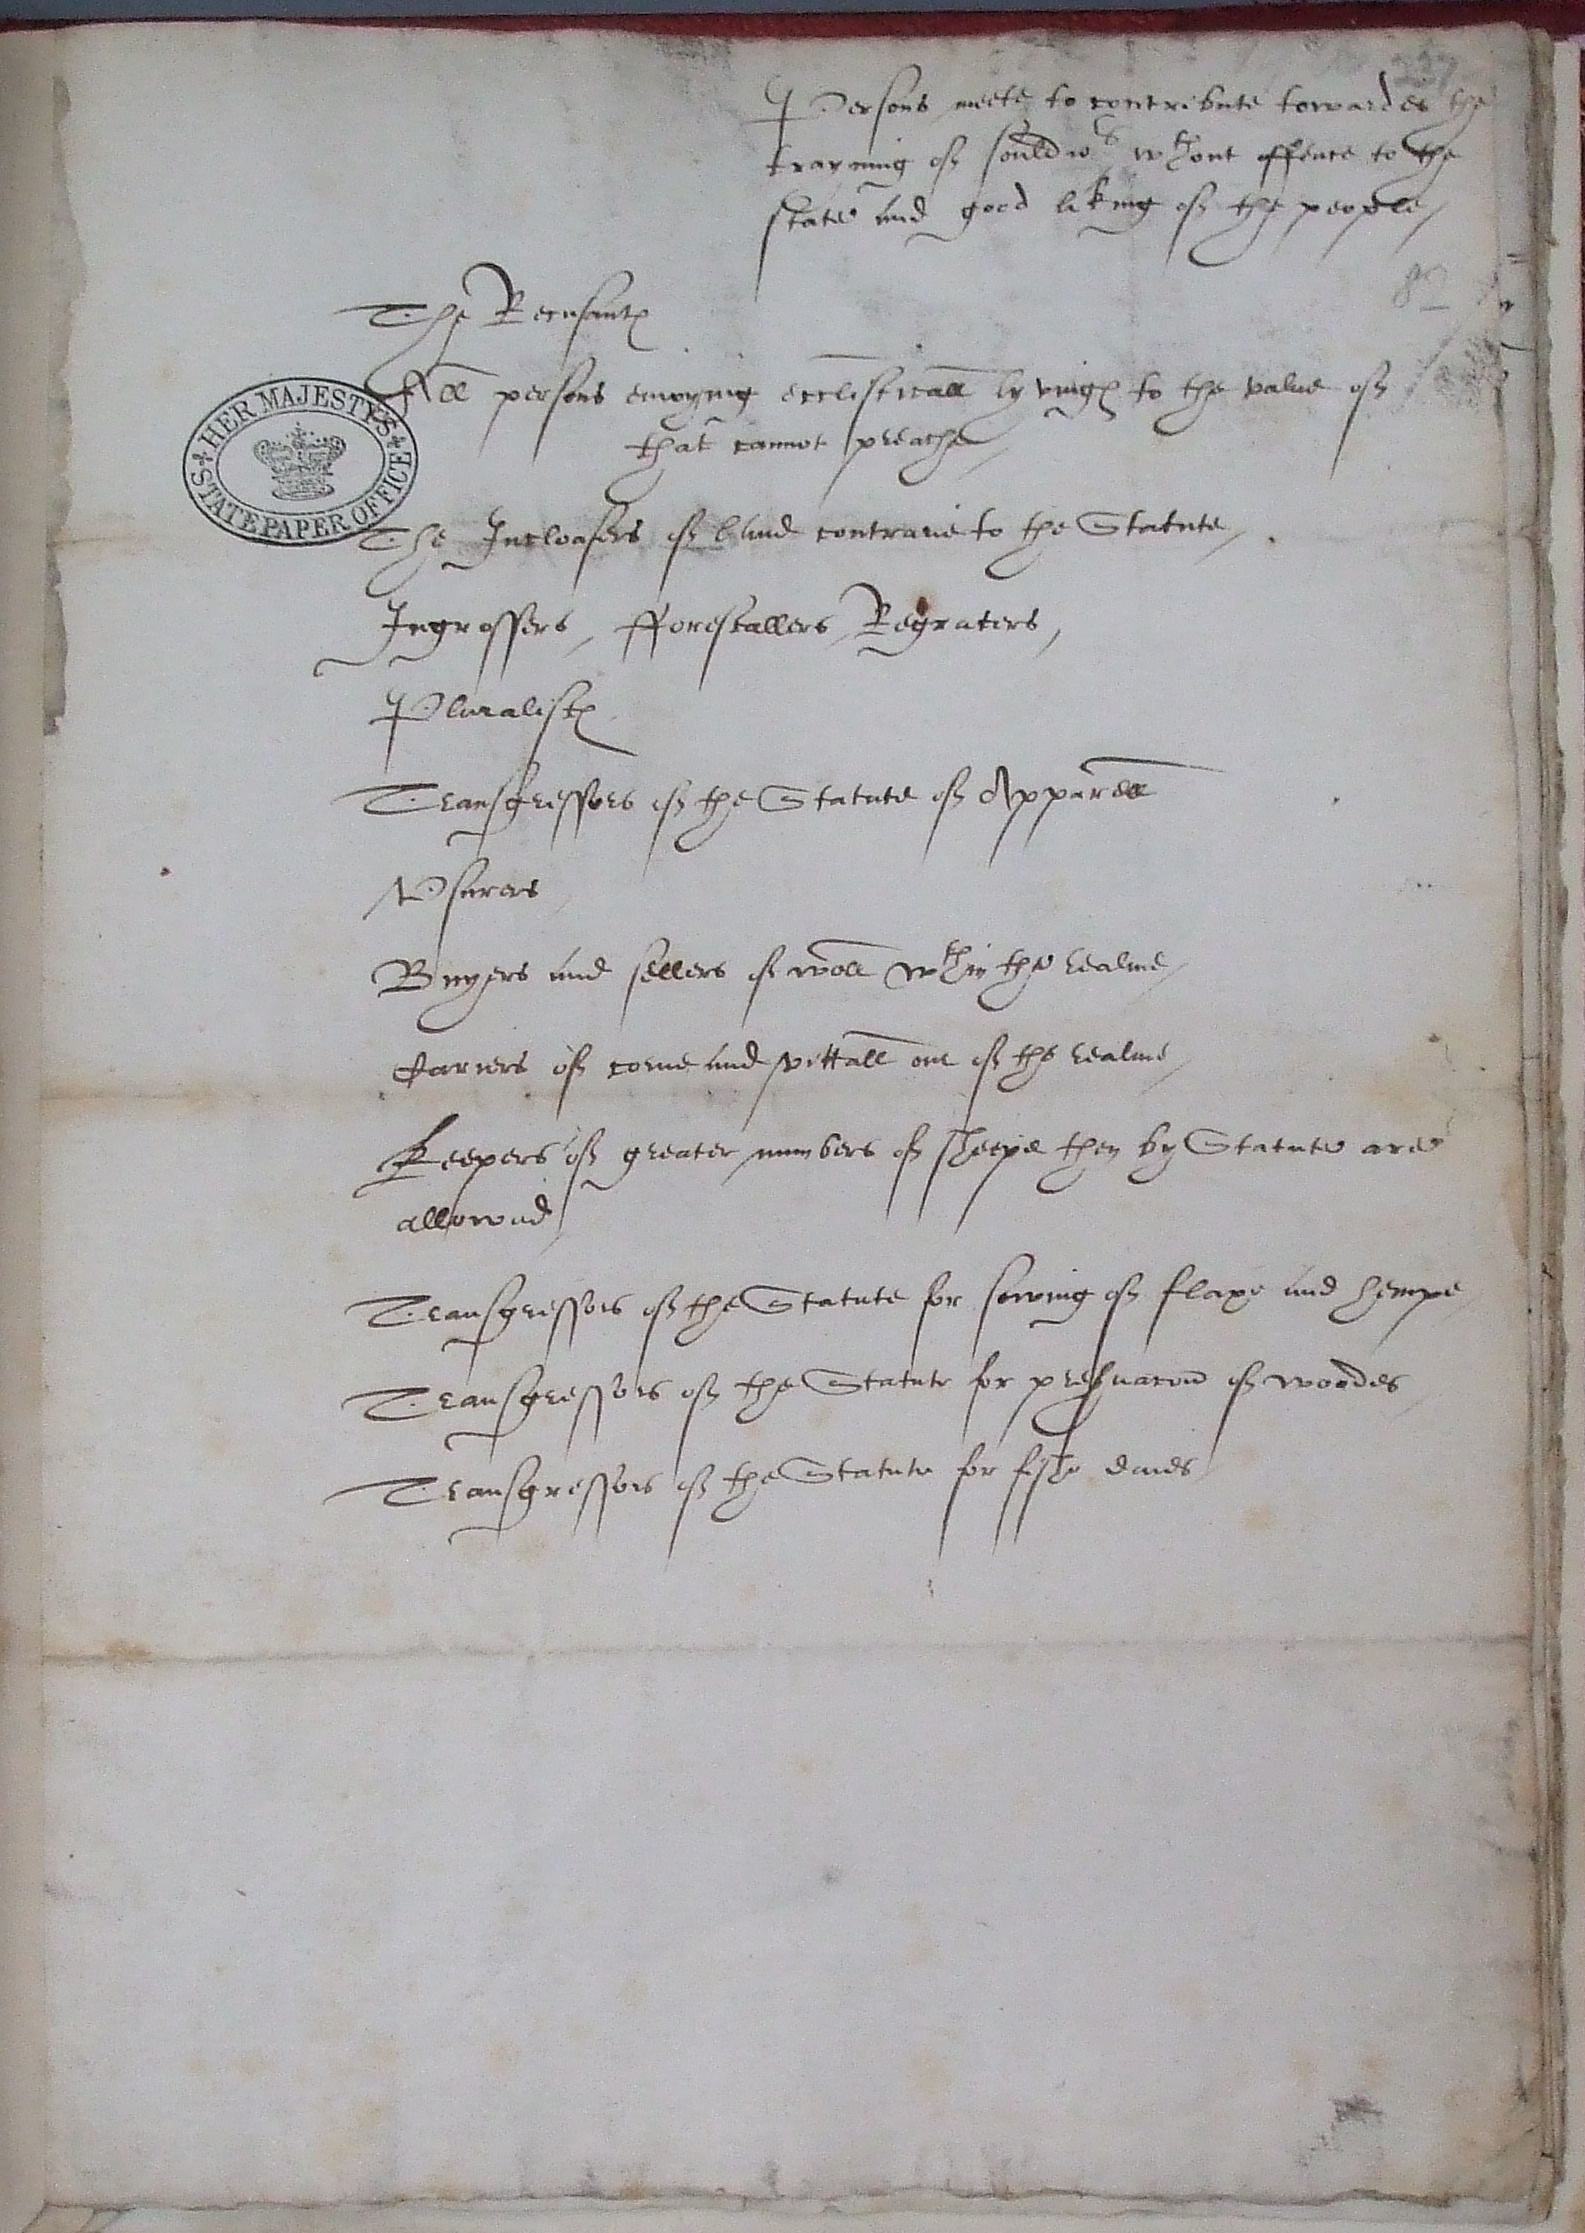 237
Persons meete to contribute towardes the
trayning of sould<sup>rs</sup> w<sup>th</sup>out offence to the
state and good liking of the people /
82
The Recusantes
All persons enioying eccli'sticall lyvinges to the value of
that cannot preache /
HER MAJESTY'S STATE PAPER OFFICE
The Incloasers of land contrarie to the Statute /
Ingrossers / fforestallers Regraters /
Pluralistes
Transgressors of the Statute of Apparell
Vsurers
Buyers and sellers of woll w<sup>th</sup>in the realme /
Cariers of corne and vittall out of the realme /
Keepers of greater numbers of sheepe then by Statute are
allowed /
Transgressors of the Statute for sowing of flaxe and hempe
Transgressors of the Statute for preseruacon of woodes /
Transgressors of the Statute for fishe daies